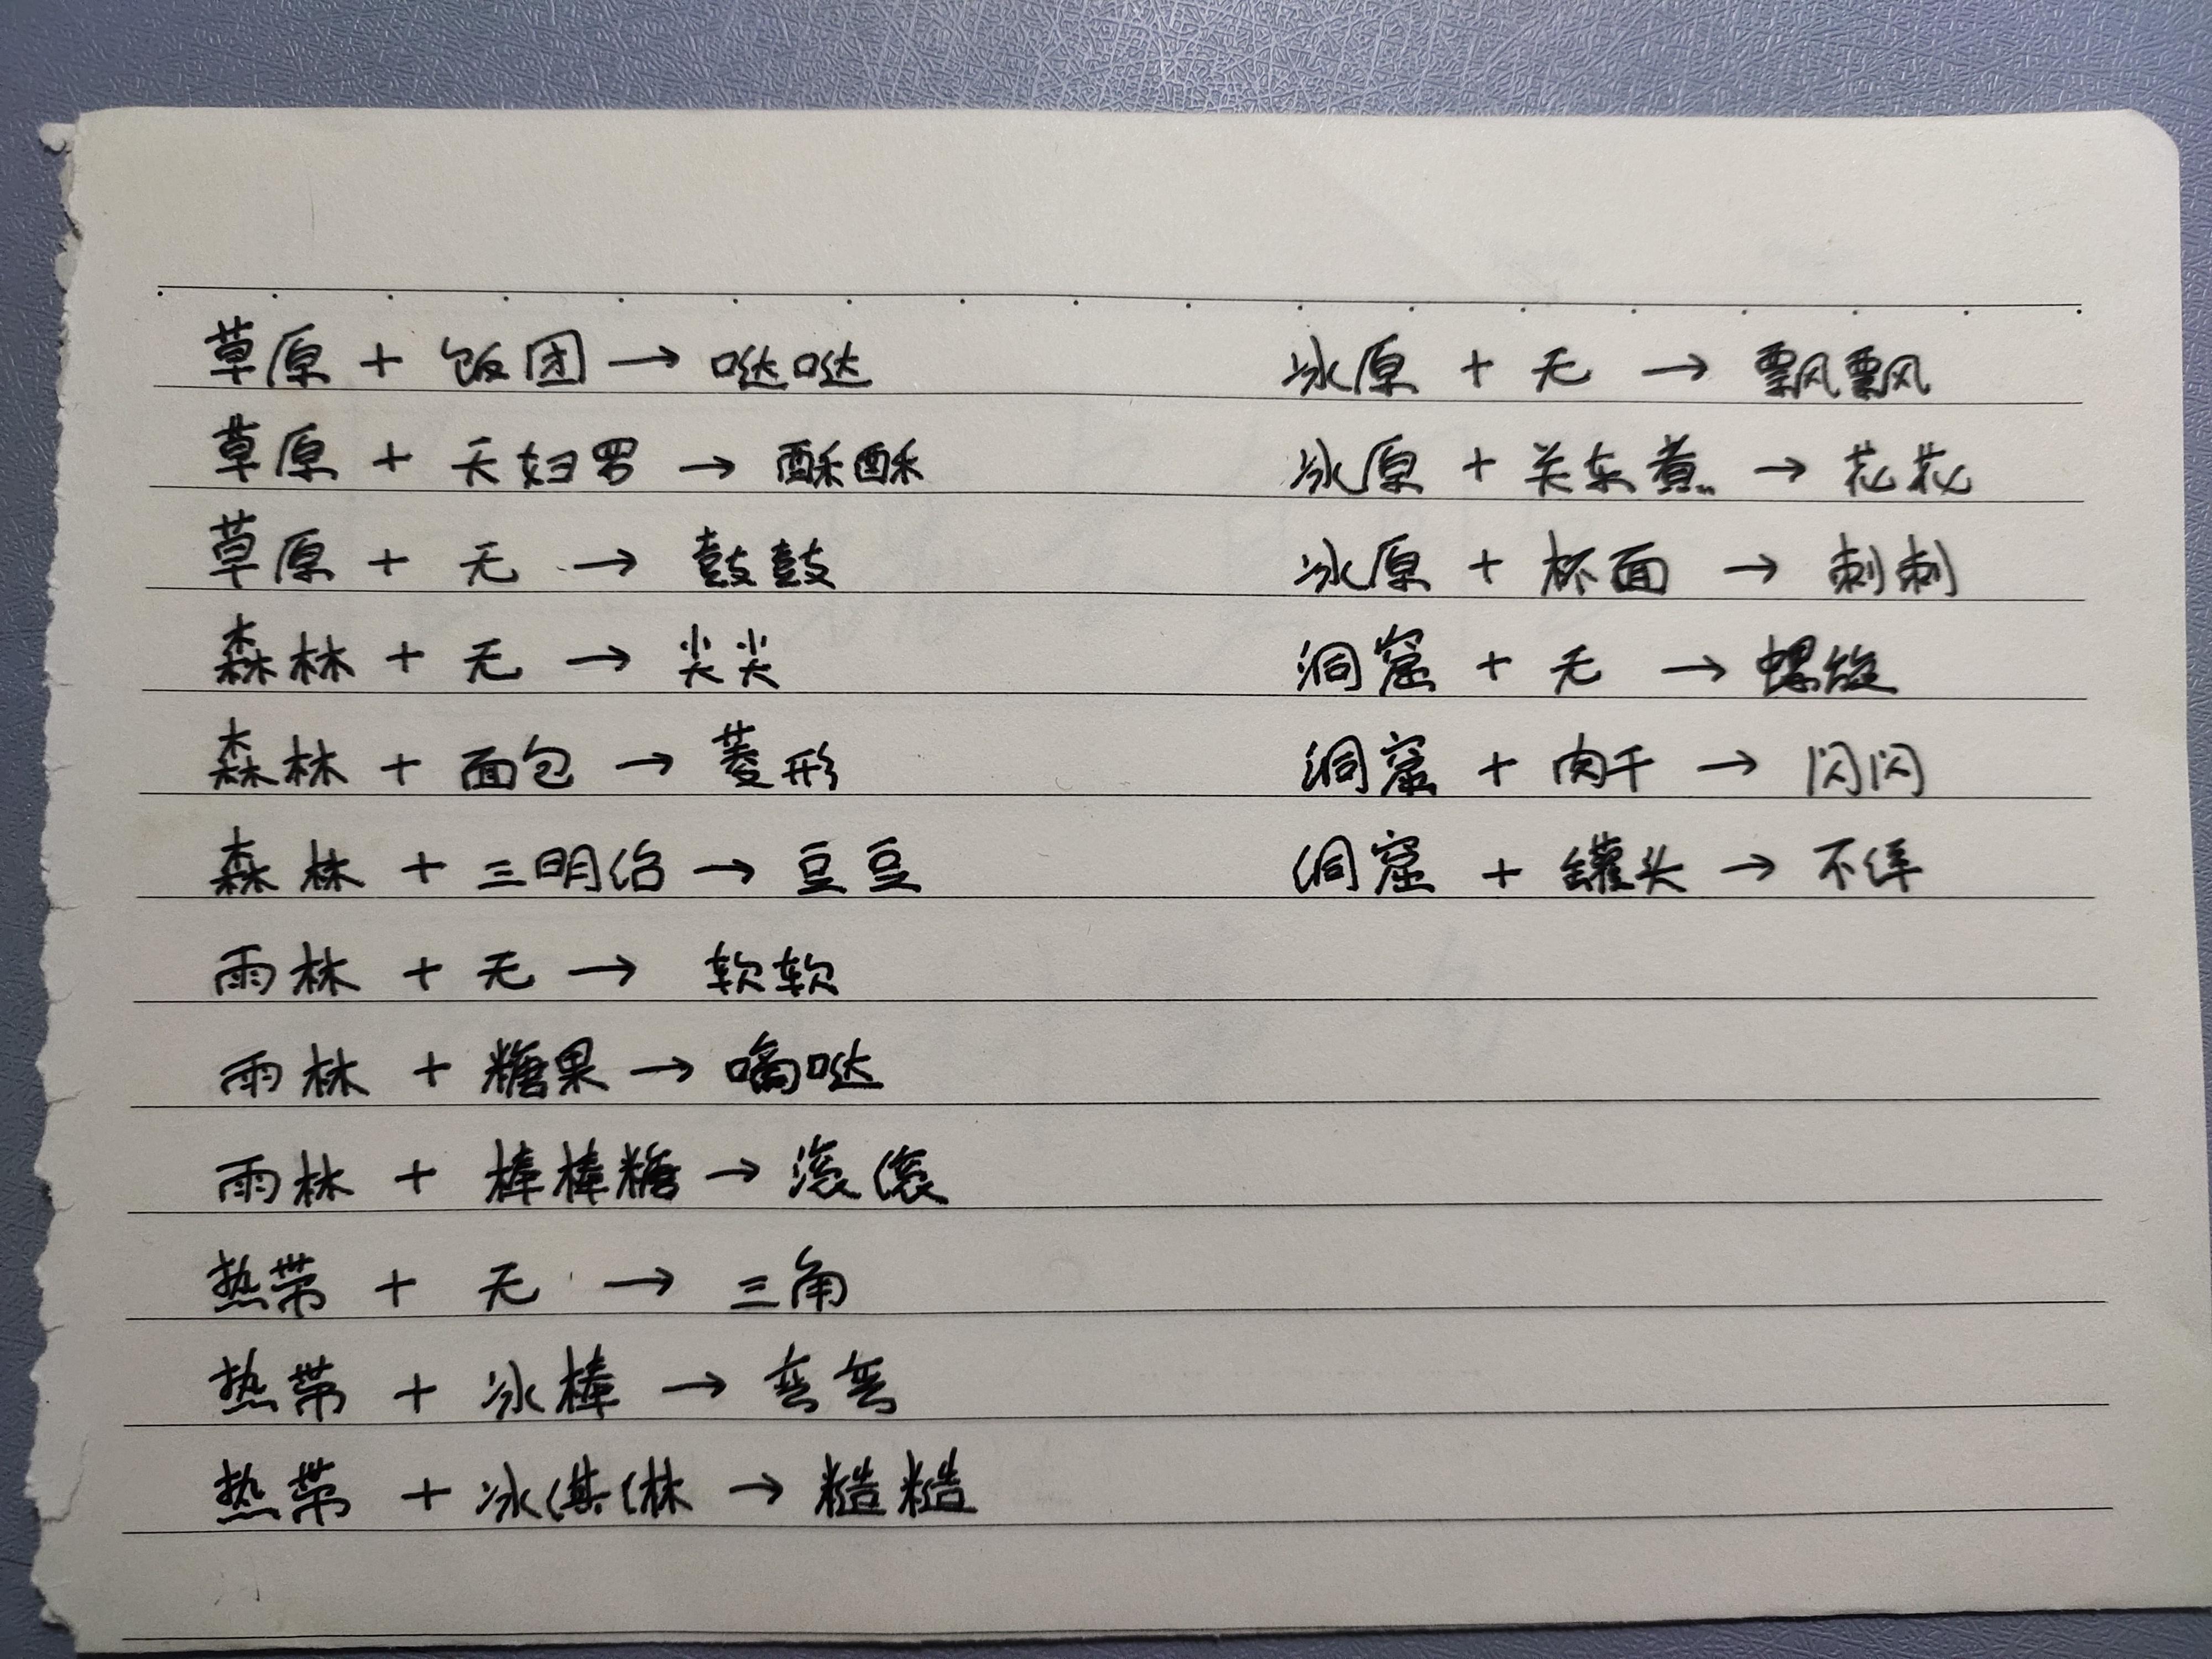 草原 + 饭团 → 哒哒
草原 + 天妇罗 → 酥酥
草原 + 无 → 鼓鼓
森林 + 无 → 尖尖
森林 + 面包 → 菱形
森林 + 三明治 → 豆豆
雨林 + 无 → 软软
雨林 + 糖果 → 嘀哒
雨林 + 棒棒糖 → 滚滚
热带 + 无 → 三角
热带 + 冰棒 → 弯弯
热带 + 冰淇淋 → 糙糙
冰原 + 无 → 飘飘
冰原 + 关东煮 → 花花
冰原 + 杯面 → 刺刺
洞窟 + 无 → 螺旋
洞窟 + 肉干 → 闪闪
洞窟 + 罐头 → 不详